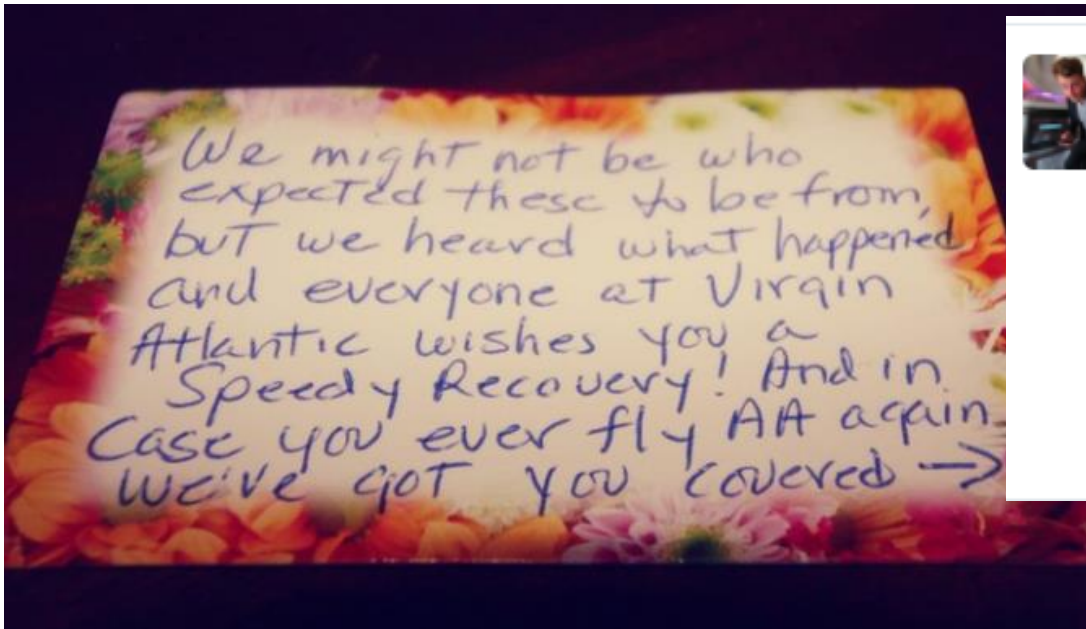 We might not be who
expected these to be from,
but we heard what happened
and everyone at Virgin
Atlantic wishes you a
Speedy Recovery! And in
Case you ever fly AA again
we've got you covered →